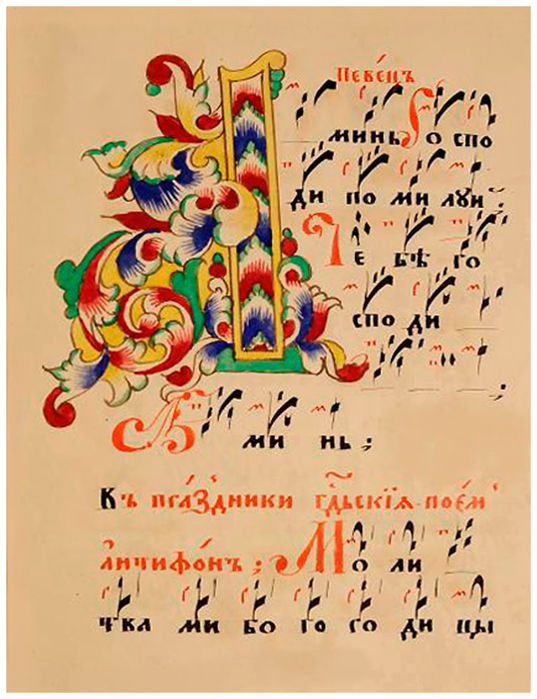 Певе́нъ
А минь Го спо
ди по ми луи
Те бѣ го
спо ди
;
А ми нь ;
Къ пра́здники гд҇ьскїѧ пое́м
а́нтифо́нъ ; Мо ли
тва ми бо го ро ди цы